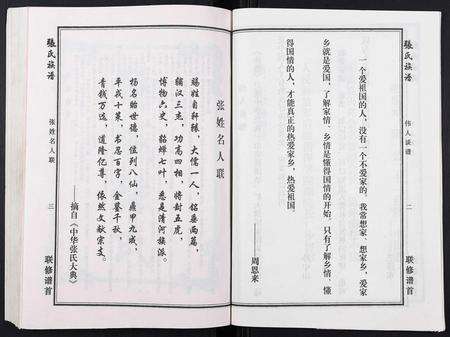 張氏族谱
伟人谈谱
二
联修谱首
一个爱祖国的人，没有一个不爱家的 我常想家、想家乡，爱家
乡就是爱国，了解家情、乡情是懂得国情的开始 只有了解乡情、懂
得国情的人，才能真正的热爱家乡、热爱祖国
——周恩来
张姓名人联
赐姓自轩辕，大儒一人，铭垂两篇，
辅汉三，功高四相，将封五虎，
博物六史，貂蝉七叶，悉是清河族派。
扬名贻世德，位列八仙，鼎甲九成，
平戎十策，书忍百字，金鉴千秋，
青钱万选，道隆亿尊，依然文献宗支。
——摘自《中华张氏大典》
張氏族谱
张姓名人联
三
联修谱首